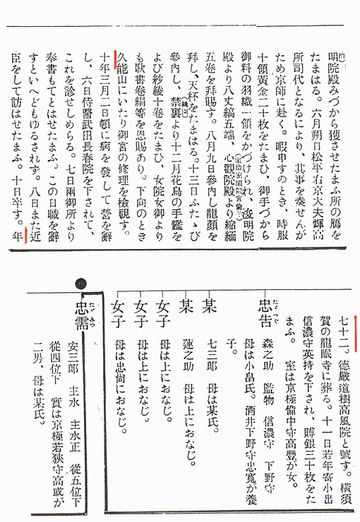 明院殿みづから獲させたまふ所の鴈を
たまはる。六月朔日松平右京大夫輝高
所司代となるにより、其事を奏せんが
ため京師に赴く。暇申すのとき、時服
十領黄金二十枚をたまひ、御手づから
御料の羽織一領をかづけられ、浚明院
殿より八丈縞五端、心觀院殿より縮緬
五卷を拜賜す。八月九日參内し龍顏を
拜し、天杯をたまはる。十三日ふたゝび
參内し、禁裏より十二月花鳥の手鑑を
よび紗綾十卷をたまひ、女院女御より
も歌書卷絹等を恩賜あり。下向のとき
久能山にいたり御宮の修理を檢視す。
十年三月二日頓に病を發して營を辭
し、六日侍醫武田長春院を下されて、
これを診せしめらる。七日兩御所より
奉書もてとはせたまふ。この日職を辭
すといへどもゆるされず。八日また近
臣をして訪はせたまふ。十日卒す。年
七十二。德嚴道樹高風院と號す。橫須
賀の龍眠寺に葬る。十一日若年寄小出
信濃守英持を下され、賻銀三十枚をた
まふ。室は京極備中守高豐が女。
忠告 森之助 監物 信濃守 下野守
母は小畠氏。酒井下野守忠寬が養
子。
某 七三郎 母は某氏。
某 蓮之助 母は上におなじ。
女子 母は上におなじ。
女子 母は上におなじ。
女子 母は忠尙におなじ。
忠需 安三郎 主水 主水正 從五位下
從四位下 實は京極若狹守高或が
二男、母は某氏。